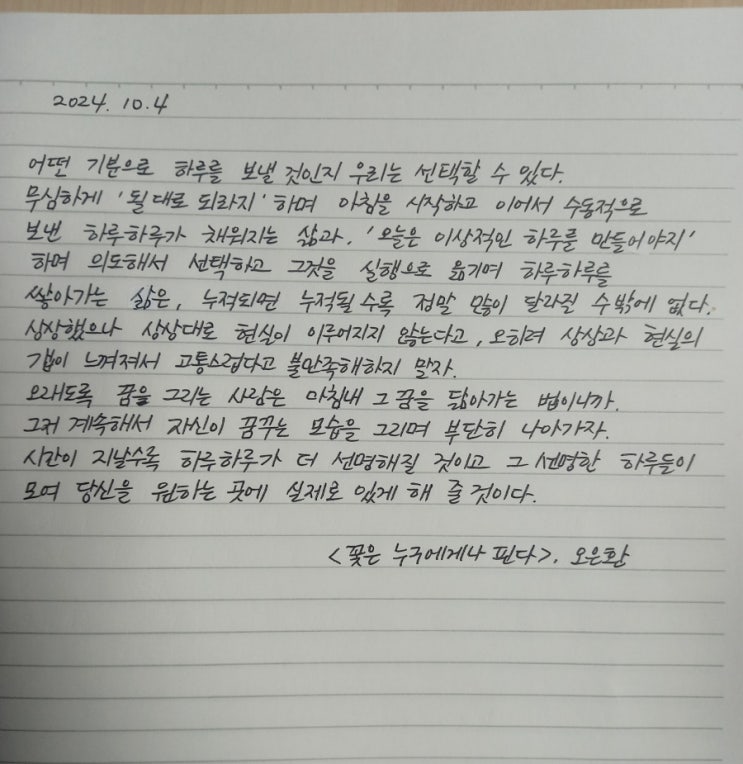 2024. 10. 4
어떤 기분으로 하루를 보낼 것인지 우리는 선택할 수 있다.
무심하게 '될대로 되라지' 하며 아침을 시작하고 이어서 수동적으로
보낸 하루하루가 채워지는 삶과, '오늘은 이상적인 하루를 만들어야지'
하며 의도해서 선택하고 그것을 실행으로 옮기며 하루하루를
쌓아가는 삶은, 누적되면 누적될수록 정말 많이 달라질 수밖에 없다.
상상했으나 상상대로 현실이 이루어지지 않는다고, 오히려 상상과 현실의
갭이 느껴져서 고통스럽다고 불만족해하지 말자.
오래도록 꿈을 그리는 사람은 마침내 그 꿈을 닮아가는 법이니까.
그저 계속해서 자신이 꿈꾸는 모습을 그리며 부단히 나아가자.
시간이 지날수록 하루하루가 더 선명해질 것이고 그 선명한 하루들이
모여 당신을 원하는 곳에 실제로 있게 해 줄 것이다.
<꽃은 누구에게나 핀다>. 오은환